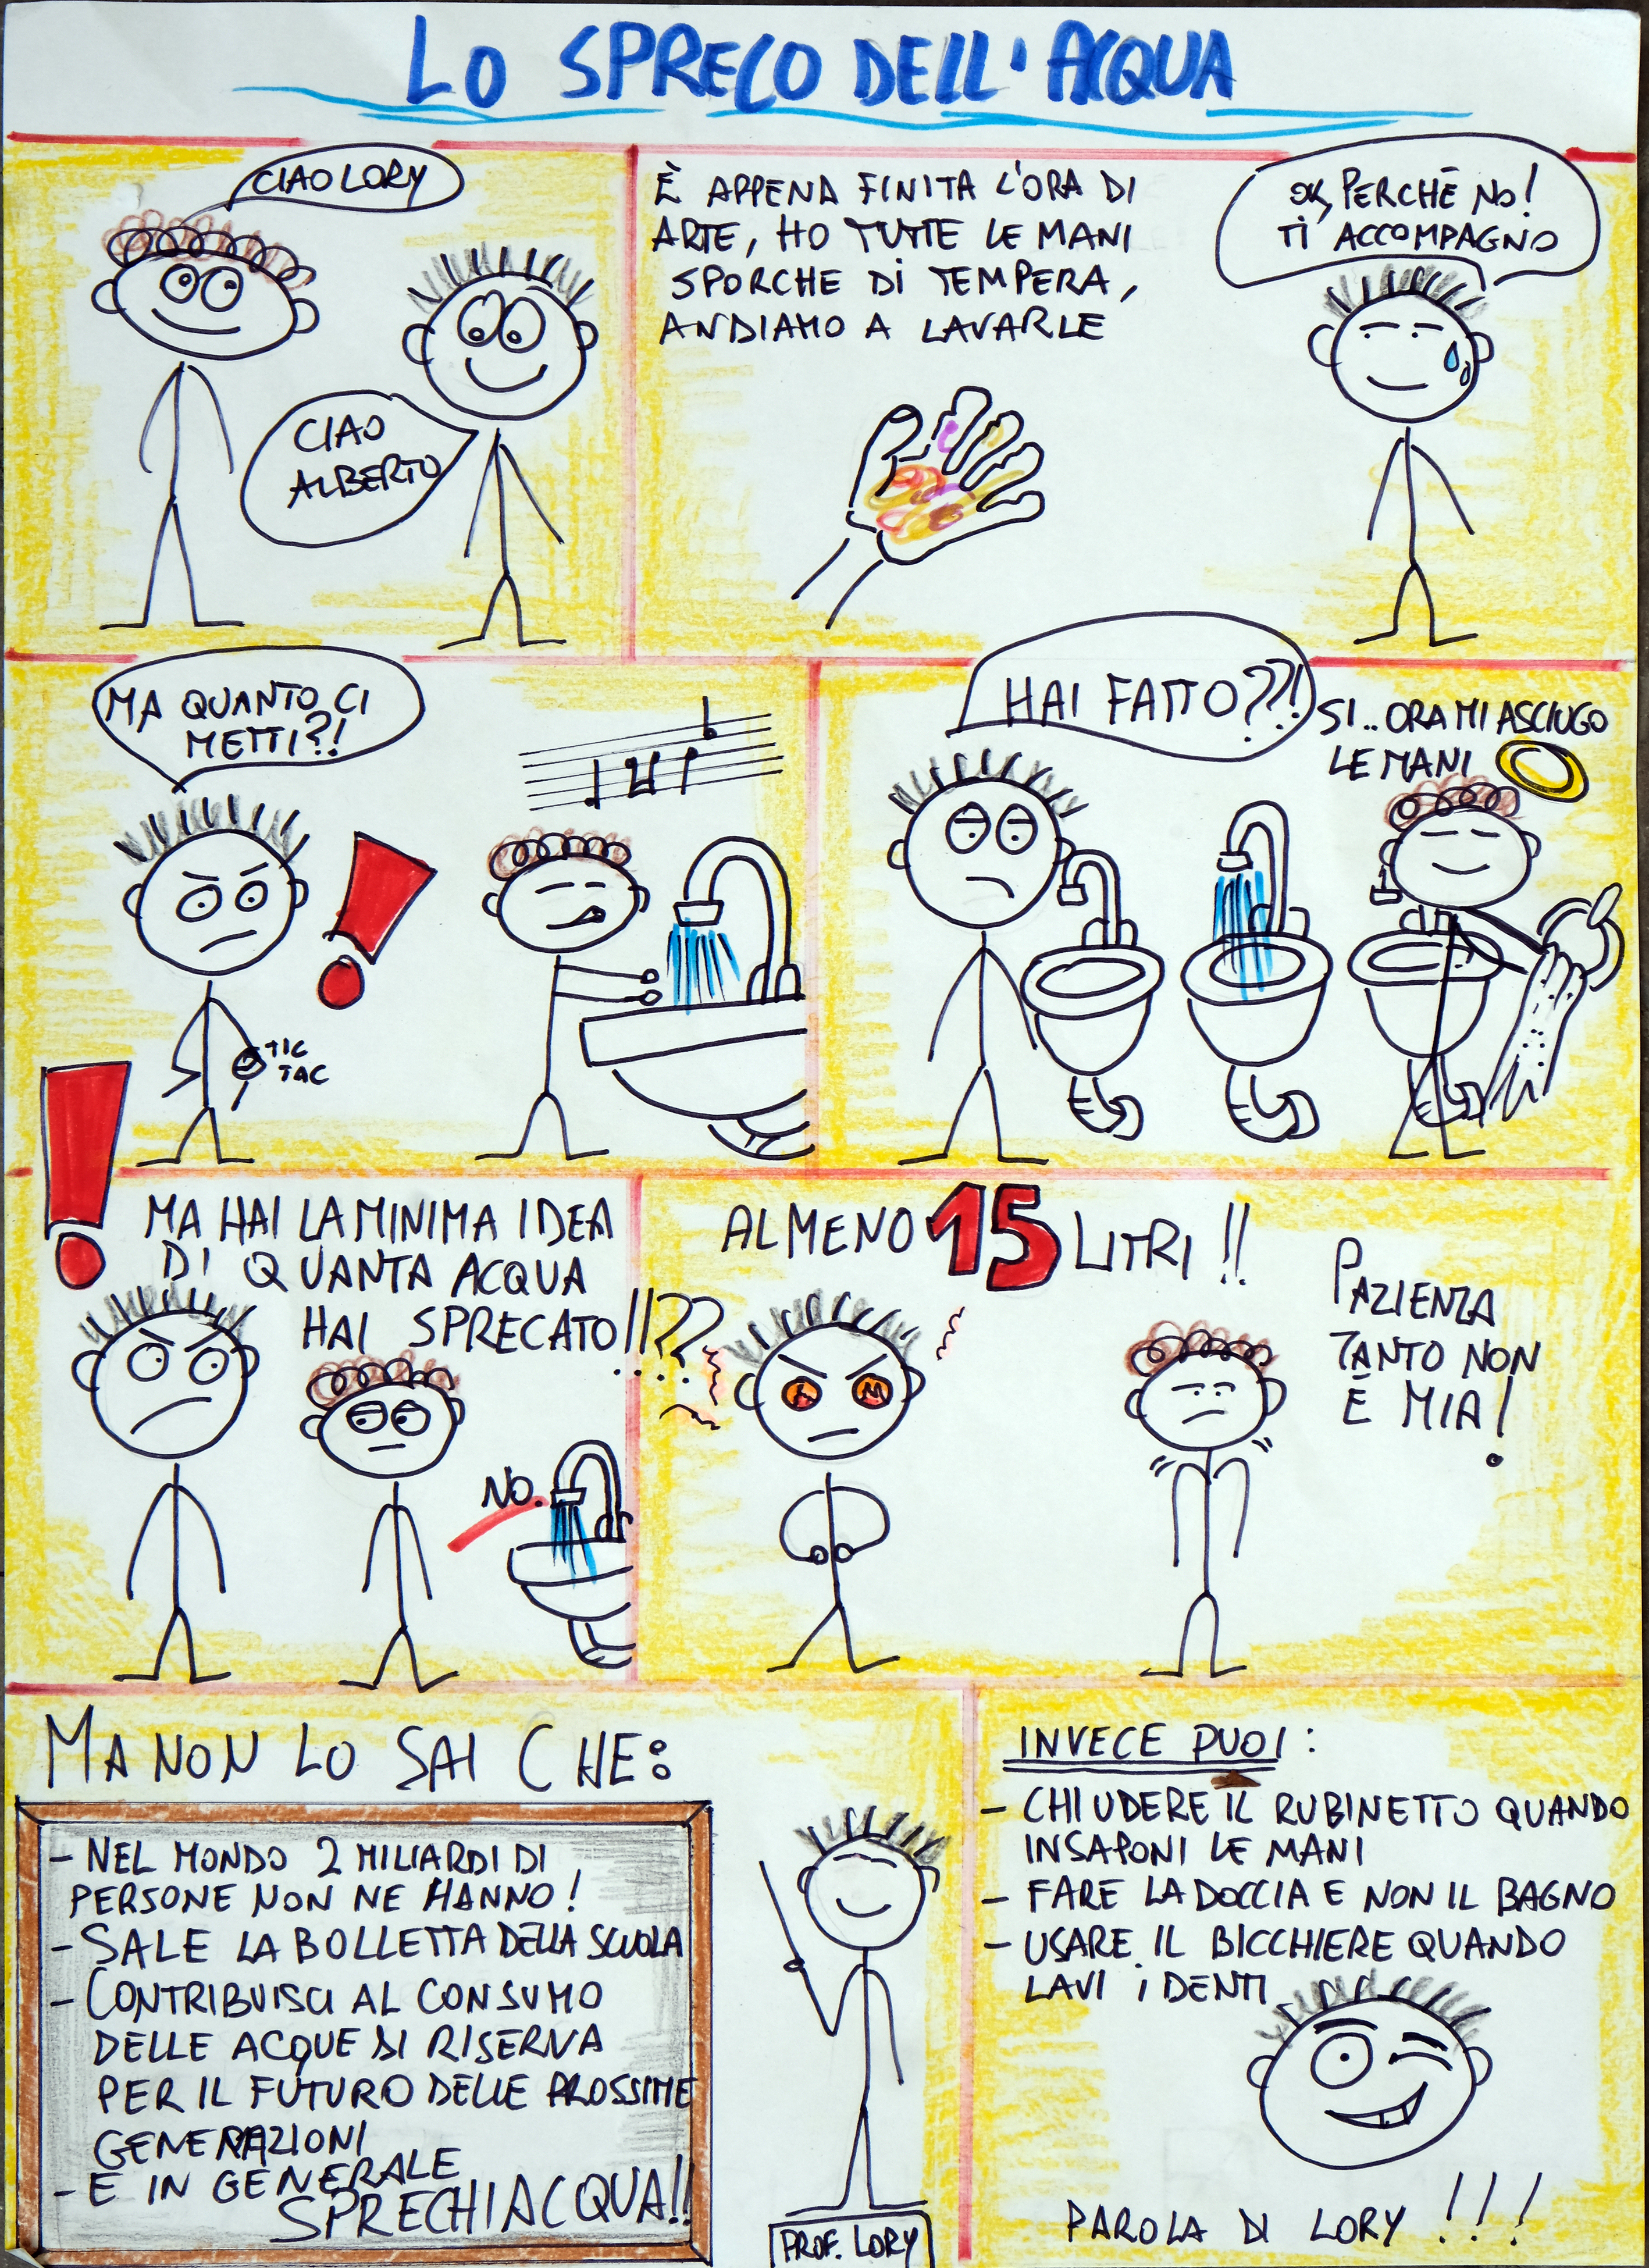 LO SPRECO DELL'ACQUA
CIAO LORY
CIAO
ALBERTO
È APPENA FINITA L'ORA DI
ARTE, HO TUTTE LE MANI
SPORCHE DI TEMPERA,
ANDIAMO A LAVARLE
OK, PERCHÉ NO!
TI ACCOMPAGNO
MA QUANTO CI
METTI?!
TIC
TAC
HAI FATTO??!
SI.. ORA MI ASCIUGO
LE MANI
MA HAI LA MINIMA IDEA
DI QUANTA ACQUA
HAI SPRECATO!!??
NO.
ALMENO 15 LITRI!!
PAZIENZA
TANTO NON
È MIA!
MA NON LO SAI CHE:
- NEL MONDO 2 MILIARDI DI
PERSONE NON NE HANNO!
- SALE LA BOLLETTA DELLA SCUOLA
- CONTRIBUISCI AL CONSUMO
DELLE ACQUE DI RISERVA
PER IL FUTURO DELLE PROSSIME
GENERAZIONI
- E IN GENERALE
SPRECHI ACQUA!!
PROF. LORY
INVECE PUOI:
- CHIUDERE IL RUBINETTO QUANDO
INSAPONI LE MANI
- FARE LA DOCCIA E NON IL BAGNO
- USARE IL BICCHIERE QUANDO
LAVI I DENTI
PAROLA DI LORY!!!